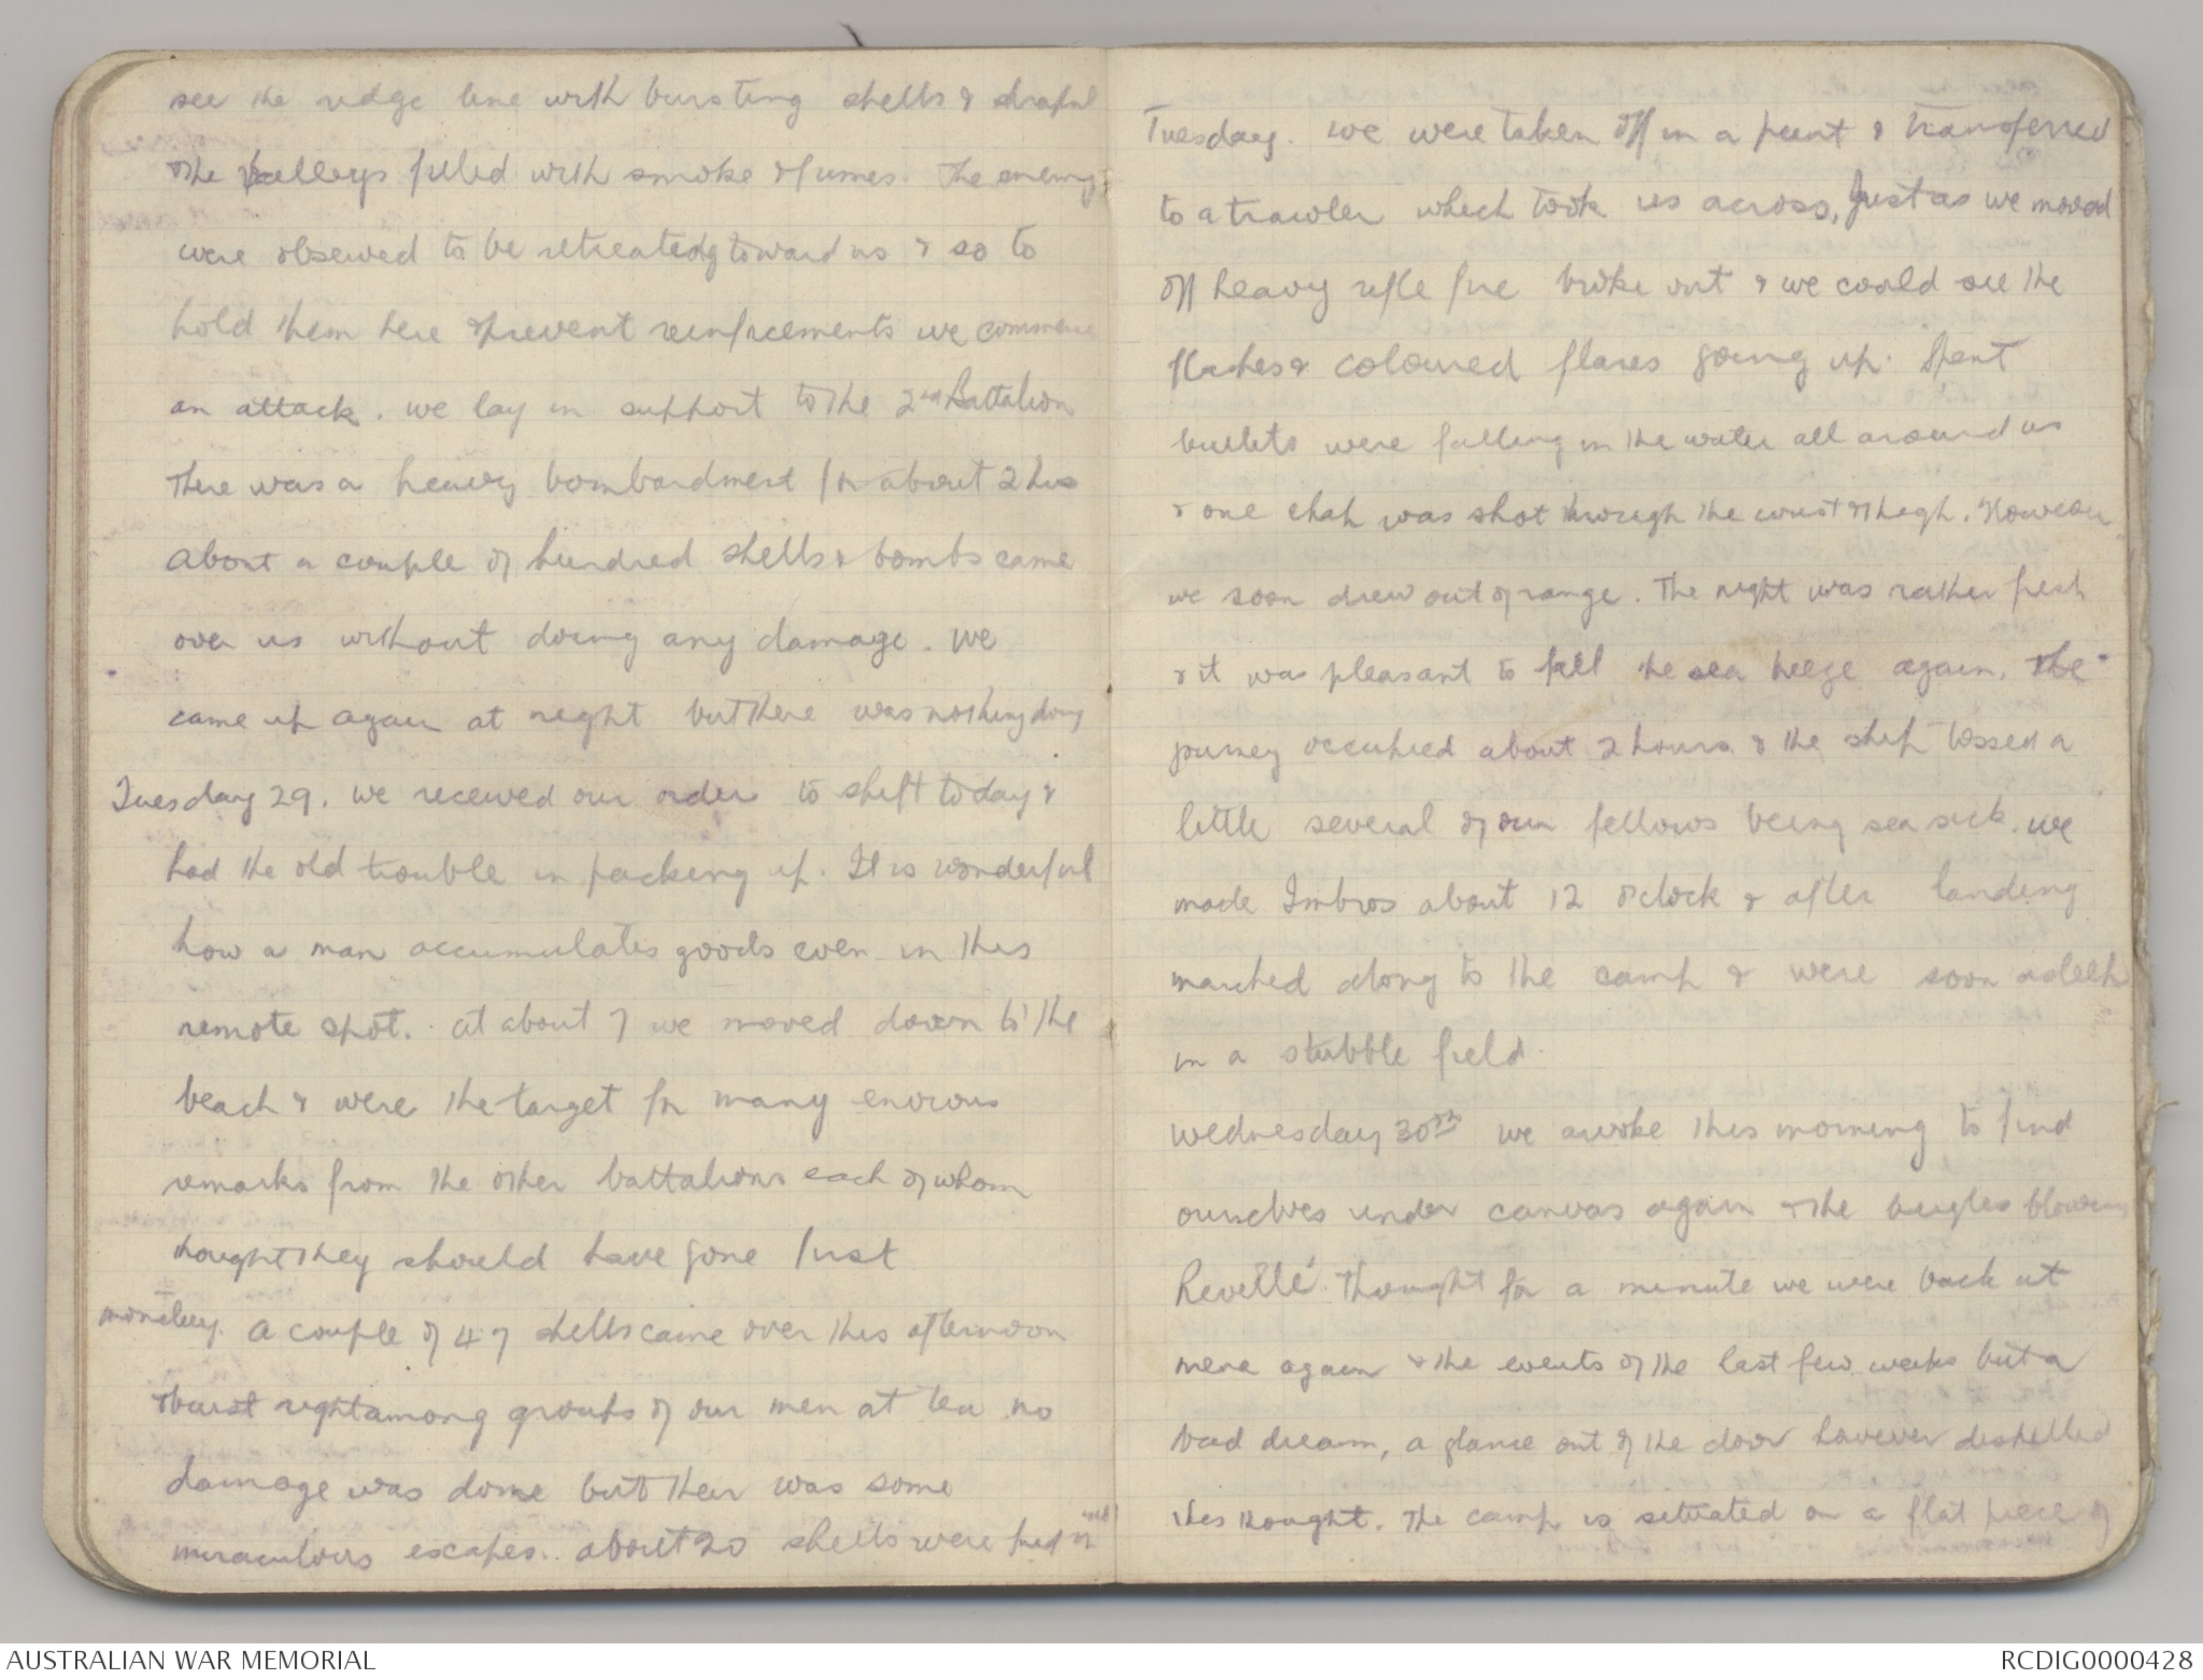 see the ridge line with bursting shells & shrapnel
The valleys filled with smoke & fumes. The enemy
were observed to be retreating toward us & so to
hold them here & prevent reinfocements we commence
an attack. We lay in support to the 2nd Battalion
There was a heavy bombardment for about 2 hrs
about a couple of hundred shells & bombs came
over us without doing any damage. We
came up again at night but there was nothing doing
Tuesday 29. We received our order to shift today &
had the old trouble in packing up. It is wonderful
how a man accumulates goods even in this
remote spot. At about 7 we moved down to the
beach & were the target for many envious
remarks from the other battalions each of whom
thought they should have gone first
Monday. A couple of 4 7 shells came over this afternoon
& burst right among groups of our men at tea no
damage was done but their was some
miraculous escapes. about 20 shells were fired
Tuesday. We were taken off in a punt & transferred
to a trawler which took us across, Just as we moved
off heavy rifle fire broke out & we could see the
flashes & coloured flares going up. Spent
bullets were falling in the water all around us
& one chap was shot through the wrist & thigh. However
we soon drew out of range. The night was rather fresh
& it was pleasant to fell the sea breeze again. The
journey occupied about 2 hours & the ship tossed a
little several of our fellows being sea sick. We
made Imbros about 12 oclock & after landing
marched along to the camp & were soon asleep
in a stubble field.
Wednesday 30th We awoke this morning to find
ourselves under canvas again & the bugles blowing
Revellé. Thought for a minute we were back at
mena again & the events of the last few weeks but a
bad dream, a glance out of the door however dispelled
this thought. The camp is situated on a flat piece of
AUSTRALIAN WAR MEMORIAL
RCDIG0000428